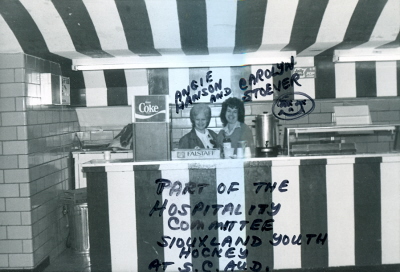 ANGIE HANSON AND CAROLYN STOEVER
Coke
FALSTAFF
PART OF THE
HOSPITALITY
COMMITTEE
SIOUXLAND YOUTH
HOCKEY
AT S.C. AUD.